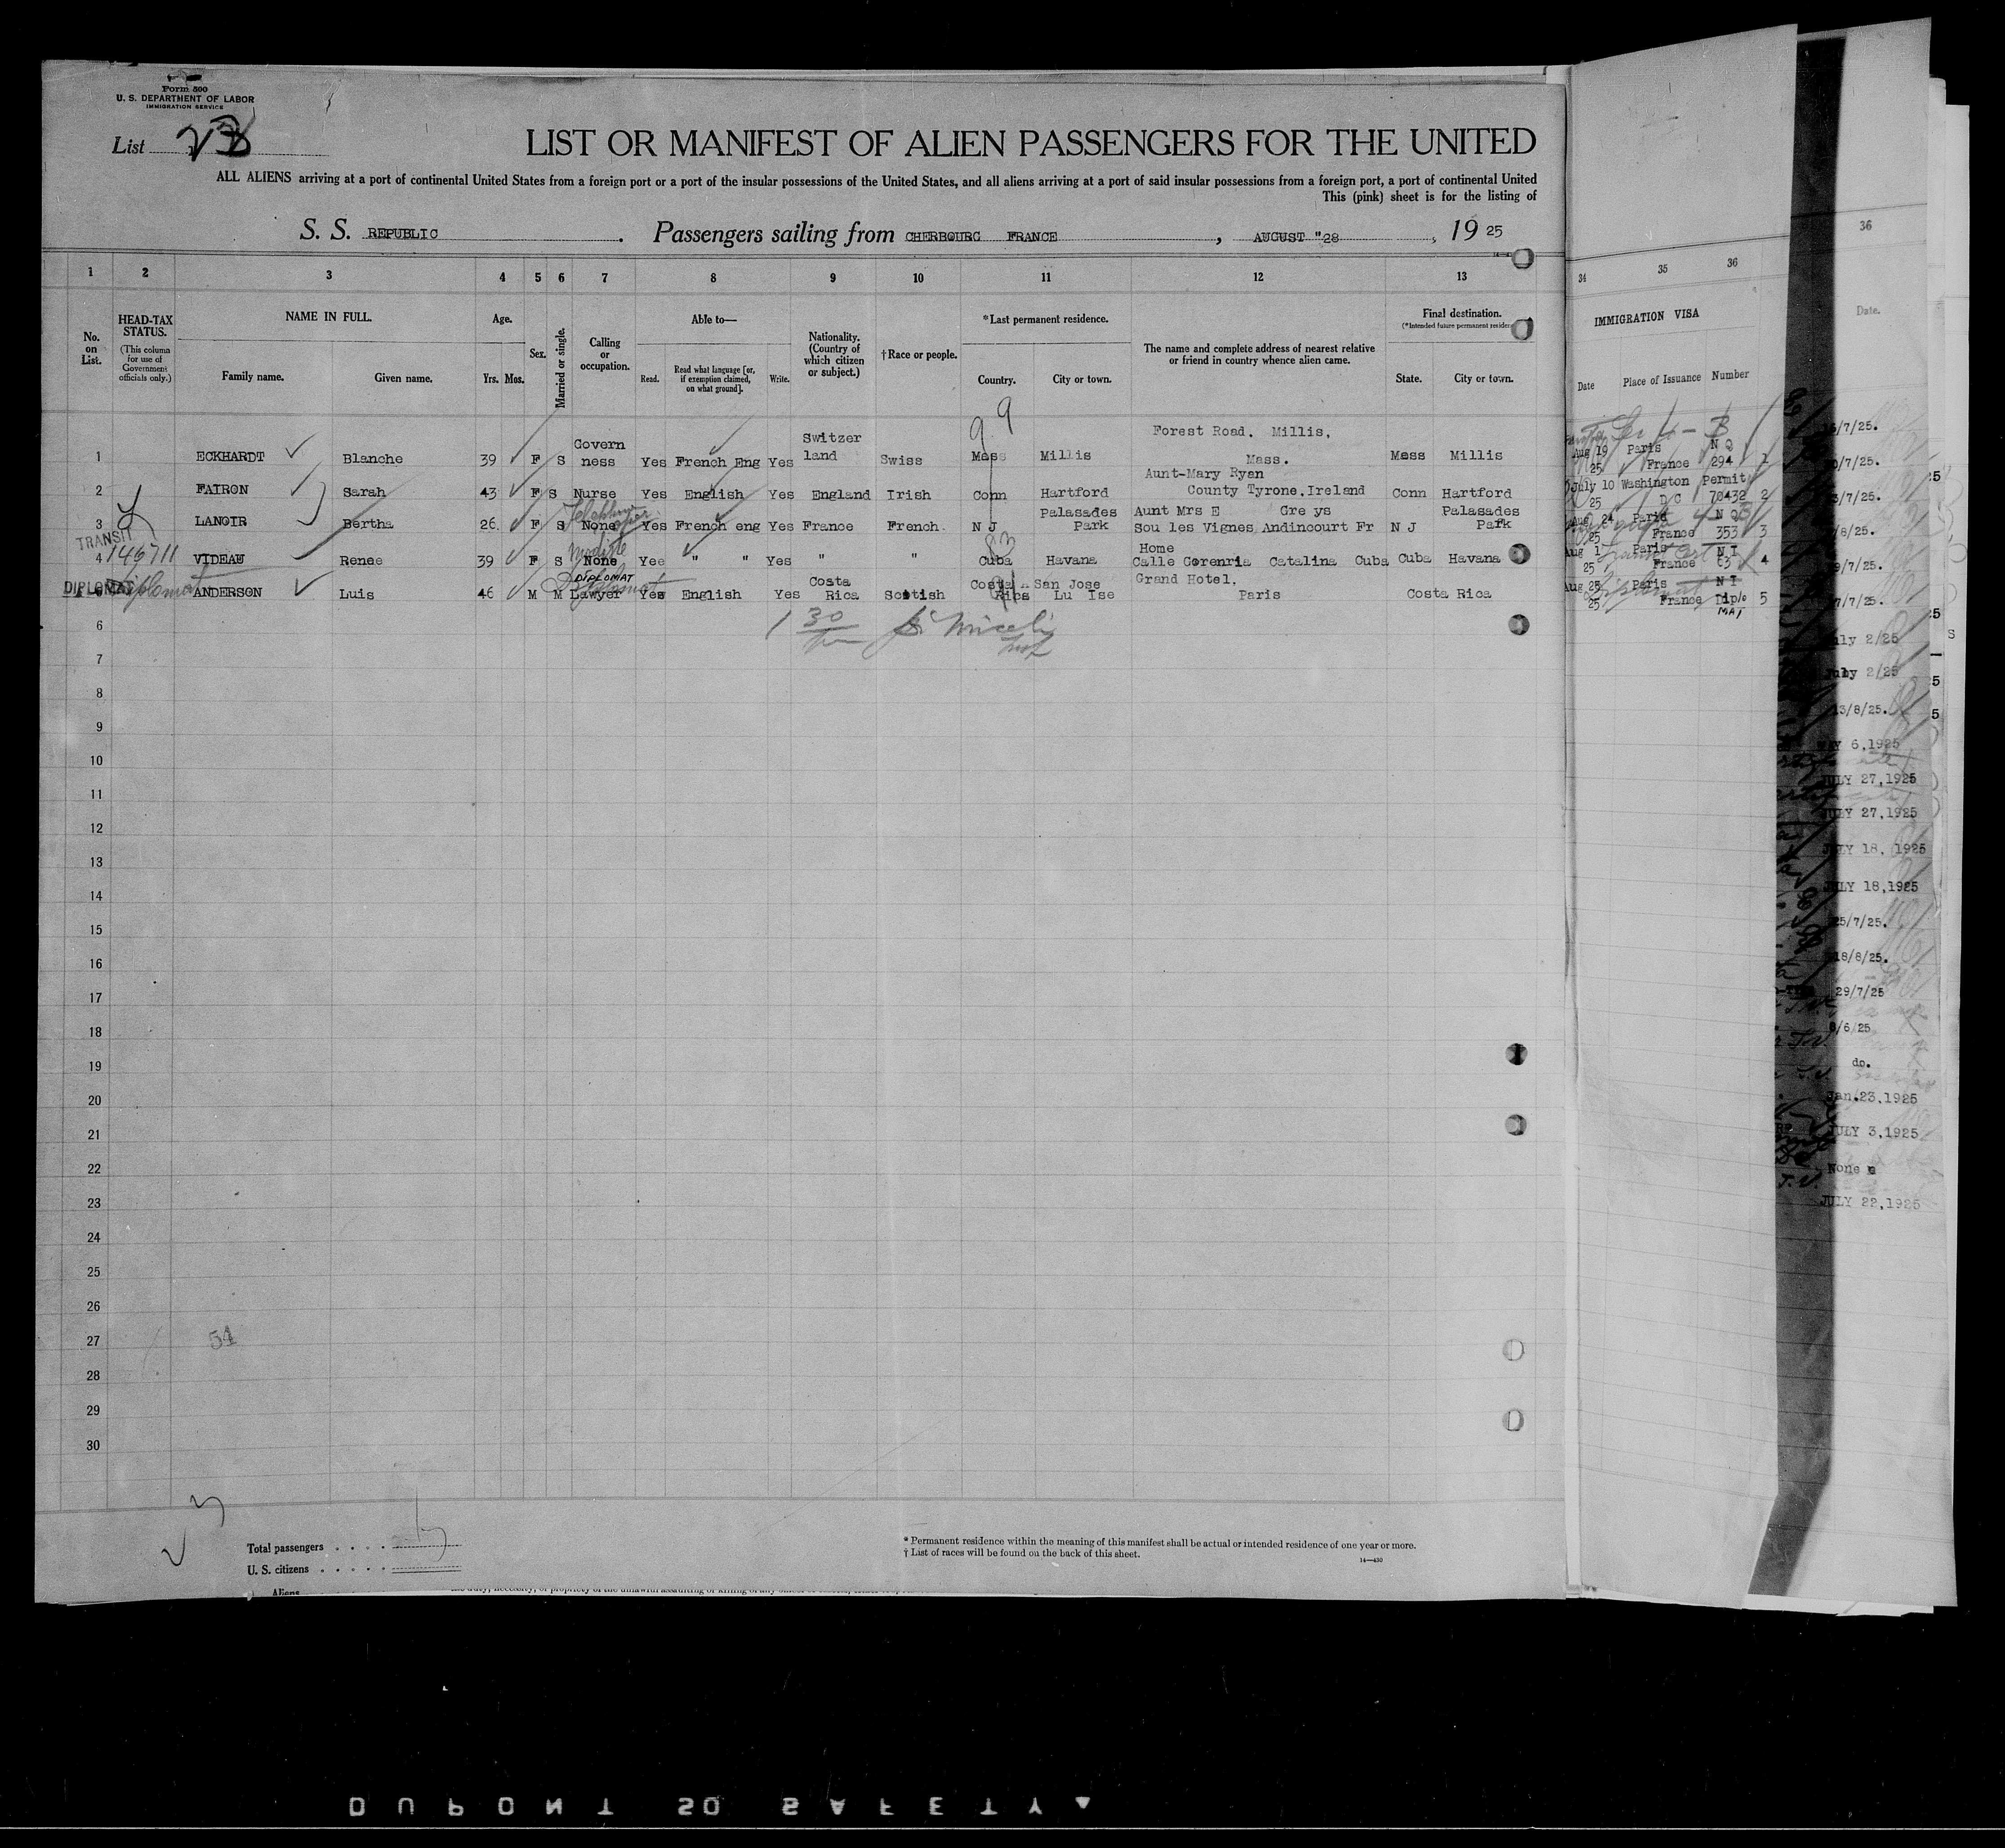 Form 500
U. S. DEPARTMENT OF LABOR
IMMIGRATION SERVICE
List
LIST OR MANIFEST OF ALIEN PASSENGERS FOR THE UNITED
ALL ALIENS arriving at a port of continental United States from a foreign port or a port of the insular possessions of the United States, and all aliens arriving at a port of said insular possessions from a foreign port, a port of continental United
This (pink) sheet is for the listing of
S. S. REPUBLIC . Passengers sailing from CHERBOURG FRANCE , AUGUST "28 , 19 25
1 2 3 4 5 6 7 8 9 10 11 12 13 34 35 36 36
No. on List.
HEAD-TAX STATUS.
(This column for use of Government officials only.)
NAME IN FULL.
Family name. Given name.
Age.
Yrs. Mos.
Sex.
Married or single.
Calling or occupation.
Able to—
Read. Read what language [or, if exemption claimed, on what ground]. Write.
Nationality. (Country of which citizen or subject.)
†Race or people.
*Last permanent residence.
Country. City or town.
The name and complete address of nearest relative or friend in country whence alien came.
Final destination.
State. City or town.
IMMIGRATION VISA
Date Place of Issuance Number
Date.
99
1 ECKHARDT Blanche 39 F S Govern ness Yes French Eng Yes Switzer land Swiss Mass Millis Forest Road. Millis, Mass. Mass Millis Aug 19 25 Paris France N Q 294 1
2 FAIRON Sarah 43 F S Nurse Yes English Yes England Irish Conn Hartford Aunt-Mary Ryan County Tyrone.Ireland Conn Hartford July 10 25 Washington D C Permit 70432 2
3 LANOIR Bertha 26. F S None Yes French eng Yes France French N J Palasades Park Aunt Mrs E Gre ys Sou les Vignes Andincourt Fr N J Palasades Park Aug 24 25 Paris France N Q 353 3
TRANSIT
4 146711 VIDEAU Renee 39 F S None Modiste Yee " " Yes " " Cuba Havana Home Calle Gerenria Catalina Cuba Cuba Havana Aug 1 25 Paris France N I 63 4
83
DIPLOMAT Diplomat ANDERSON Luis 46 M M DIPLOMAT Lawyer Yes English Yes Costa Rica Scotish Costa Rica San Jose Lu Ise Grand Hotel. Paris Costa Rica Aug 25 25 Paris France N I Diplo MAT 5
6
1 30
7
8
9
10
11
12
13
14
15
16
17
18
19
20
21
22
23
24
25
26
27
28
29
30
54
Total passengers
U. S. citizens
Aliens
* Permanent residence within the meaning of this manifest shall be actual or intended residence of one year or more.
† List of races will be found on the back of this sheet.
14—430
/7/25.
/7/25.
/7/25.
/8/25.
9/7/25.
7/7/25.
July 2/25
July 2/25
13/8/25.
MAY 6,1925
JULY 27,1925
JULY 27,1925
JULY 18, 1925
JULY 18,1925
25/7/25.
18/8/25.
29/7/25
/6/25
do.
Jan.23,1925
JULY 3,1925
None
JULY 22,1925
DUPONT SO SAFETY